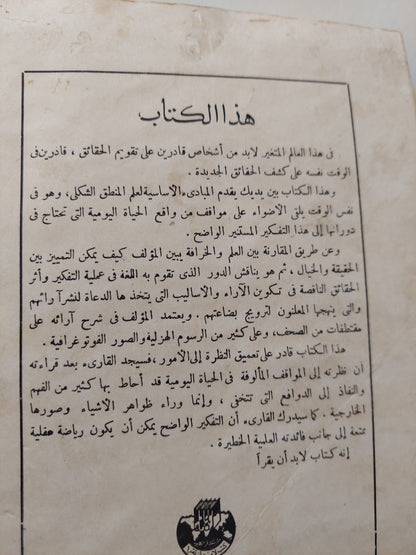 هذا الكتاب
فى هذا العالم المتغير لابد من أشخاص قادرين على تقويم الحقائق ، قادرين فى
الوقت نفسه على كشف الحقائق الجديدة .
وهذا الكتاب بين يديك يقدم المبادىء الأساسية لعلم المنطق الشكلى، وهو فى
نفس الوقت يلقى الاضواء على مواقف من واقع الحياة اليومية التى تحتاج فى
دوراتها إلى هذا التفكير المستنير الواضح .
وعن طريق المقارنة بين العلم والخرافة يبين المؤلف كيف يمكن التمييز بين
الحقيقة والخيال ، ثم هو يناقش الدور الذى تقوم به اللغة فى عملية التفكير وأثر
الحقائق الناقصة فى تكوين الآراء والأساليب التى يتخذ ها الدعاة لنشر آرائهم
والتى ينهجها المعلنون لترويج بضاعتهم . ويعتمد المؤلف فى شرح آرائه على
مقتطفات من الصحف، وعلى كثير من الرسوم الهزلية والصور الفوتوغرافية .
هذا الكتاب قادر على تعميق النظرة إلى الأمور ، فسيجد القارىء بعد قراءته
أن نظرته إلى المواقف المألوفة فى الحياة اليومية قد أحاط بها كثير من الفهم
والنفاذ إلى الدوافع التى تتخفى ، وإنما وراء ظواهر الأشياء وصورها
الخارجية . كما سيدرك القارىء أن التفكير الواضح يمكن أن يكون رياضة عقلية
ممتعة إلى جانب فائدته العلمية الخطيرة .
إنه كتاب لابد أن يقرأ